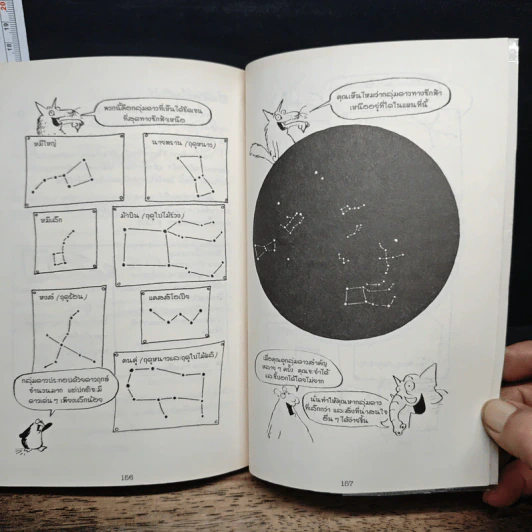 พวกนี้คือกลุ่มดาวที่เห็นได้ชัดเจน
ที่สุดทางซีกฟ้าเหนือ
หมีใหญ่
นายพราน (ฤดูหนาว)
หมีเล็ก
ม้าบิน (ฤดูใบไม้ร่วง)
หงส์ (ฤดูร้อน)
แคสซิโอเปีย
คนคู่ (ฤดูหนาวและฤดูใบไม้ผลิ)
กลุ่มดาวประกอบด้วยดาวฤกษ์
จำนวนมาก แต่ปกติจะมี
ดาวเด่นๆ เพียงเล็กน้อย
156
คุณเห็นไหมว่ากลุ่มดาวทางซีกฟ้า
เหนืออยู่ที่ใดในแผนที่นี้
เมื่อคุณดูกลุ่มดาวสำคัญ
หลายๆ ครั้ง คุณจะจำได้
และชี้บอกได้โดยไม่ยาก
นั่นทำให้คุณหากลุ่มดาว
ที่เล็กกว่า และสิ่งที่น่าสนใจ
อื่นๆ ได้ง่ายขึ้น
157